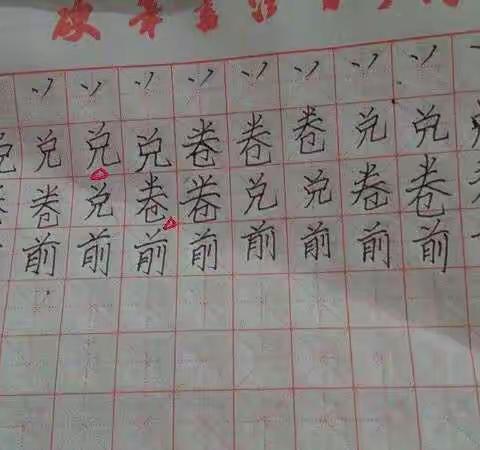 丷 丷 丷 丷 丷 丷 丷 丷
兑 兑 兑 兑 卷 卷 卷 兑 兑
卷 兑 卷 卷 兑 兑 卷 卷
前 前 前 前 前 前 前 前